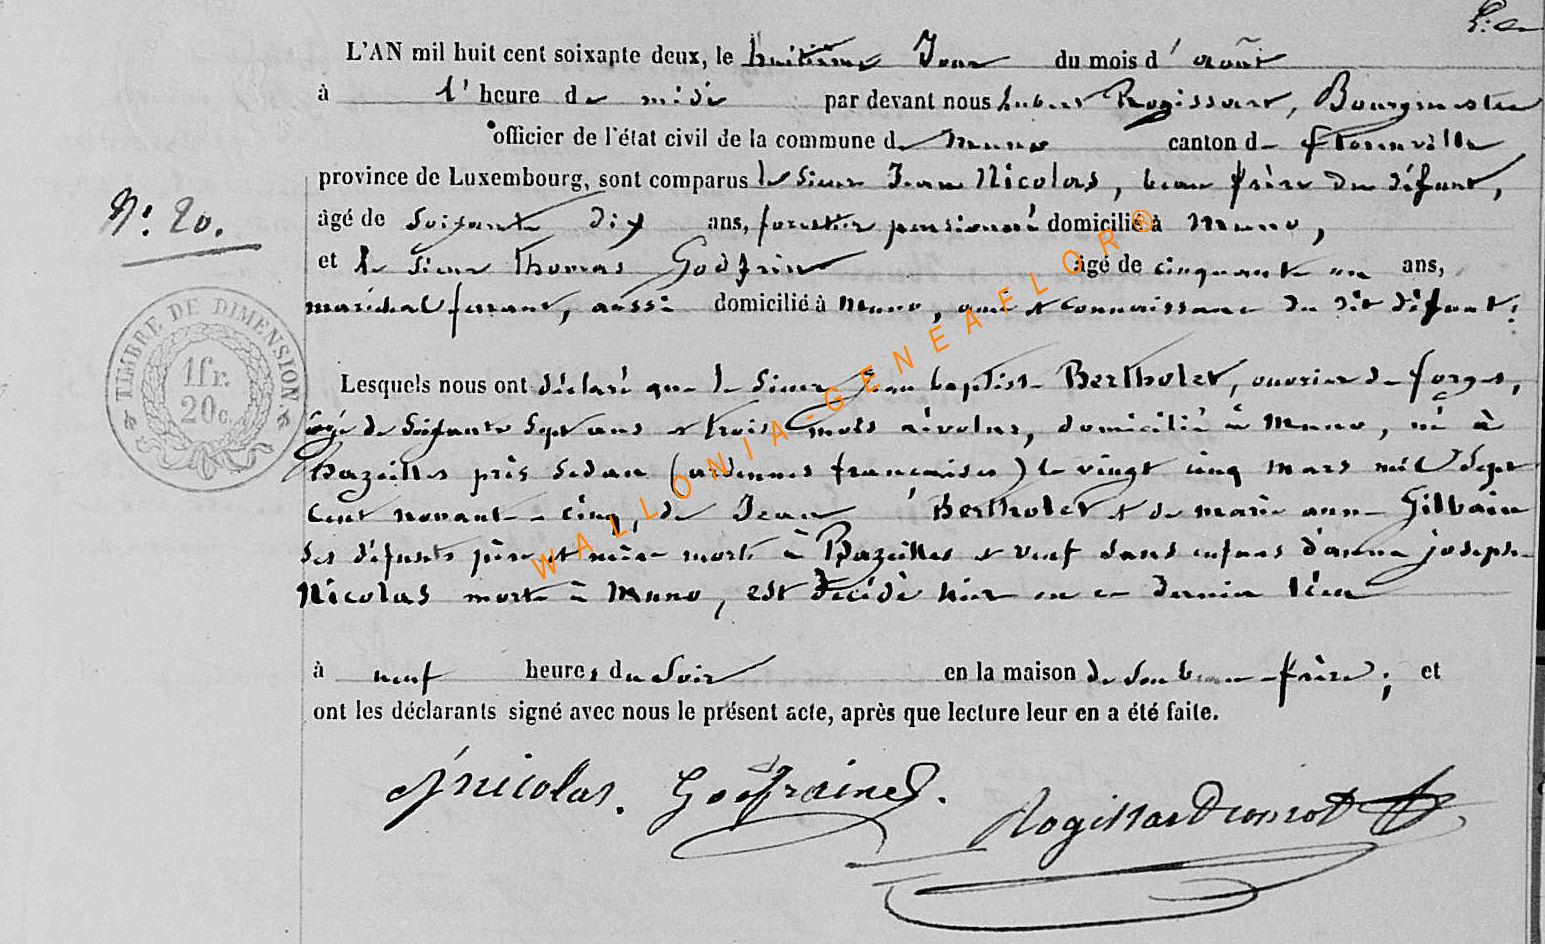 L'AN mil huit cent soixante deux, le huitième Jour du mois d'août
à l'heure de midi par devant nous hubert Rogissart, Bourgmestre
officier de l'état civil de la commune de Muno canton de florenville
province de Luxembourg, sont comparus le sieur Jean Nicolas, beau frère du défunt,
N°. 20.
âgé de soixante dix ans, forestier pensionné domicilié à Muno,
et le sieur Thomas Godfrin âgé de cinquante un ans,
maréchal ferrant, aussi domicilié à Muno, ami et connaissance du dit défunt:
TIMBRE DE DIMENSION
1fr.
20c.
Lesquels nous ont déclaré que le sieur Jean baptiste Bertholet, ouvrier de forges,
âgé de soixante sept ans et trois mois révolus, domicilié à Muno, né à
Bazeilles près sedan (ardennes francaises) le vingt cinq mars mil sept
cent nonante cinq, de Jean Bertholet et de marie anne Gilbain
ses défunts père et mère morts à Bazeilles et veuf sans enfans d'anna joseph
Nicolas morte à Muno, est décédé hier en ce dernier lieu
à neuf heures du soir en la maison de son beau-frère; et
ont les déclarants signé avec nous le présent acte, après que lecture leur en a été faite.
J Nicolas. Godfrain
WALLONIA-GENEAELOR®